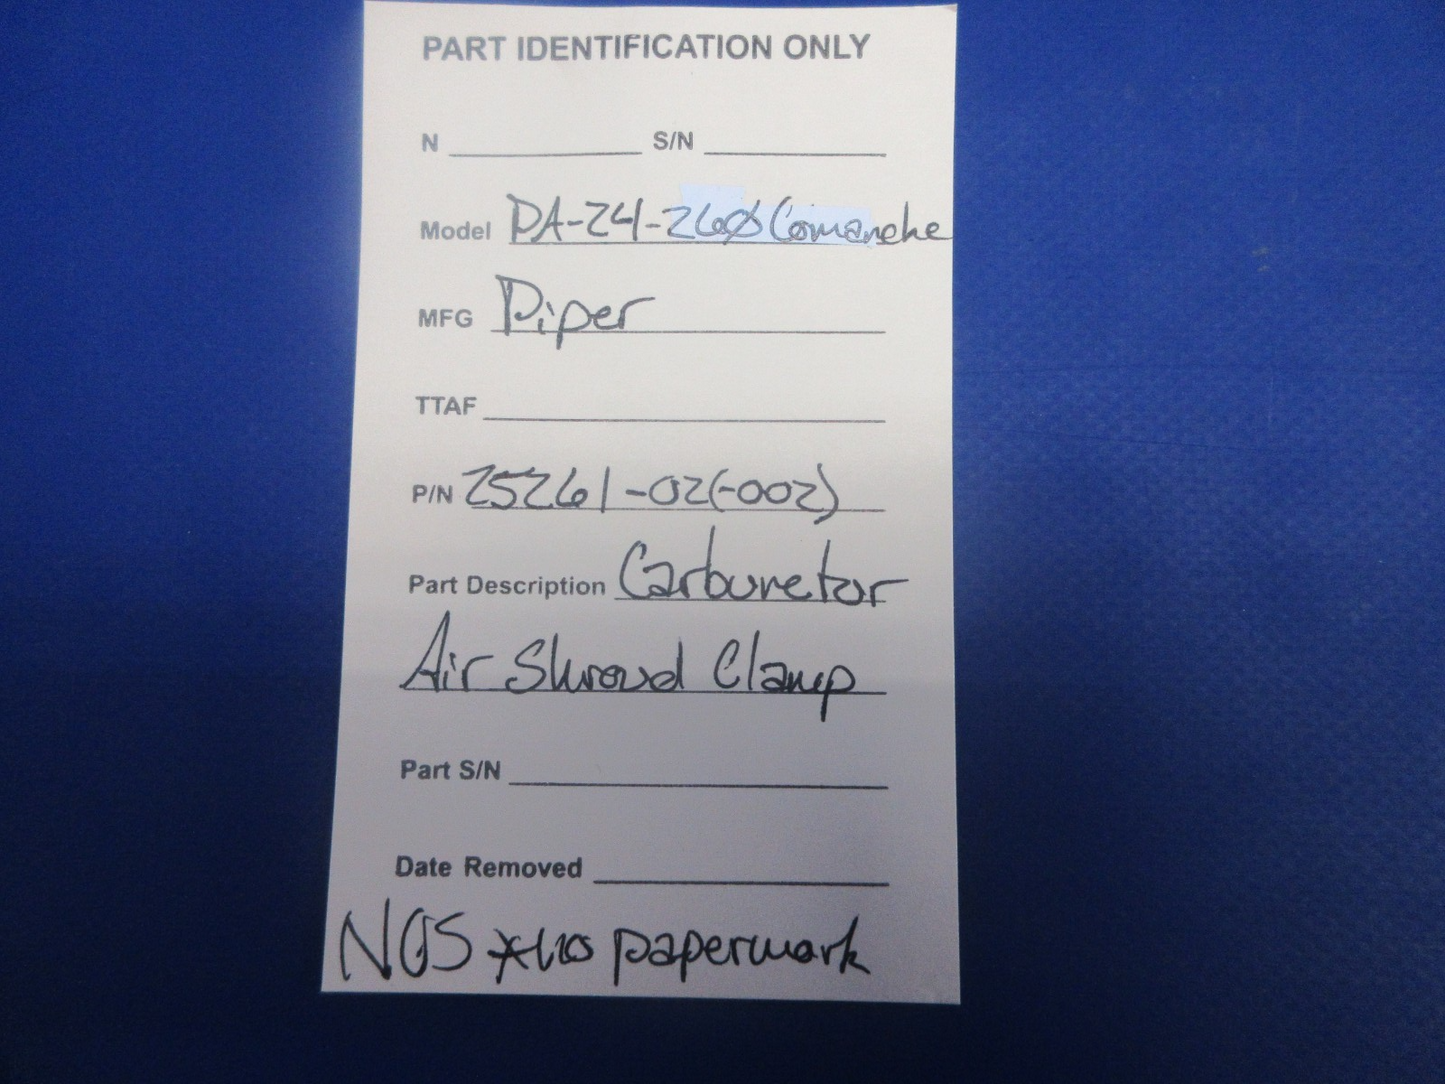 PART IDENTIFICATION ONLY
N S/N
Model PA-24-260 Comanche
MFG Piper
TTAF
P/N 25261-02(-002)
Part Description Carburetor
Air Shroud Clamp
Part S/N
Date Removed
NOS *no paperwork